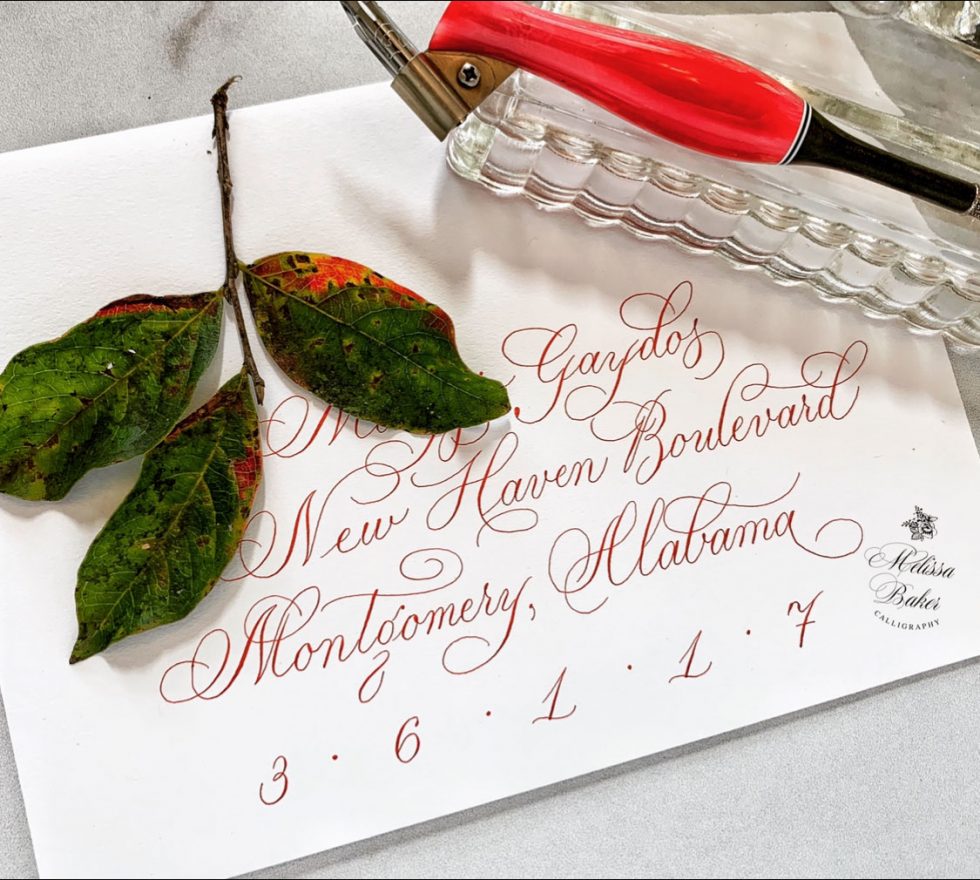 Gaydos
New Haven Boulevard
Montgomery, Alabama
3 · 6 · 1 · 1 · 7
Melissa
Baker
CALLIGRAPHY